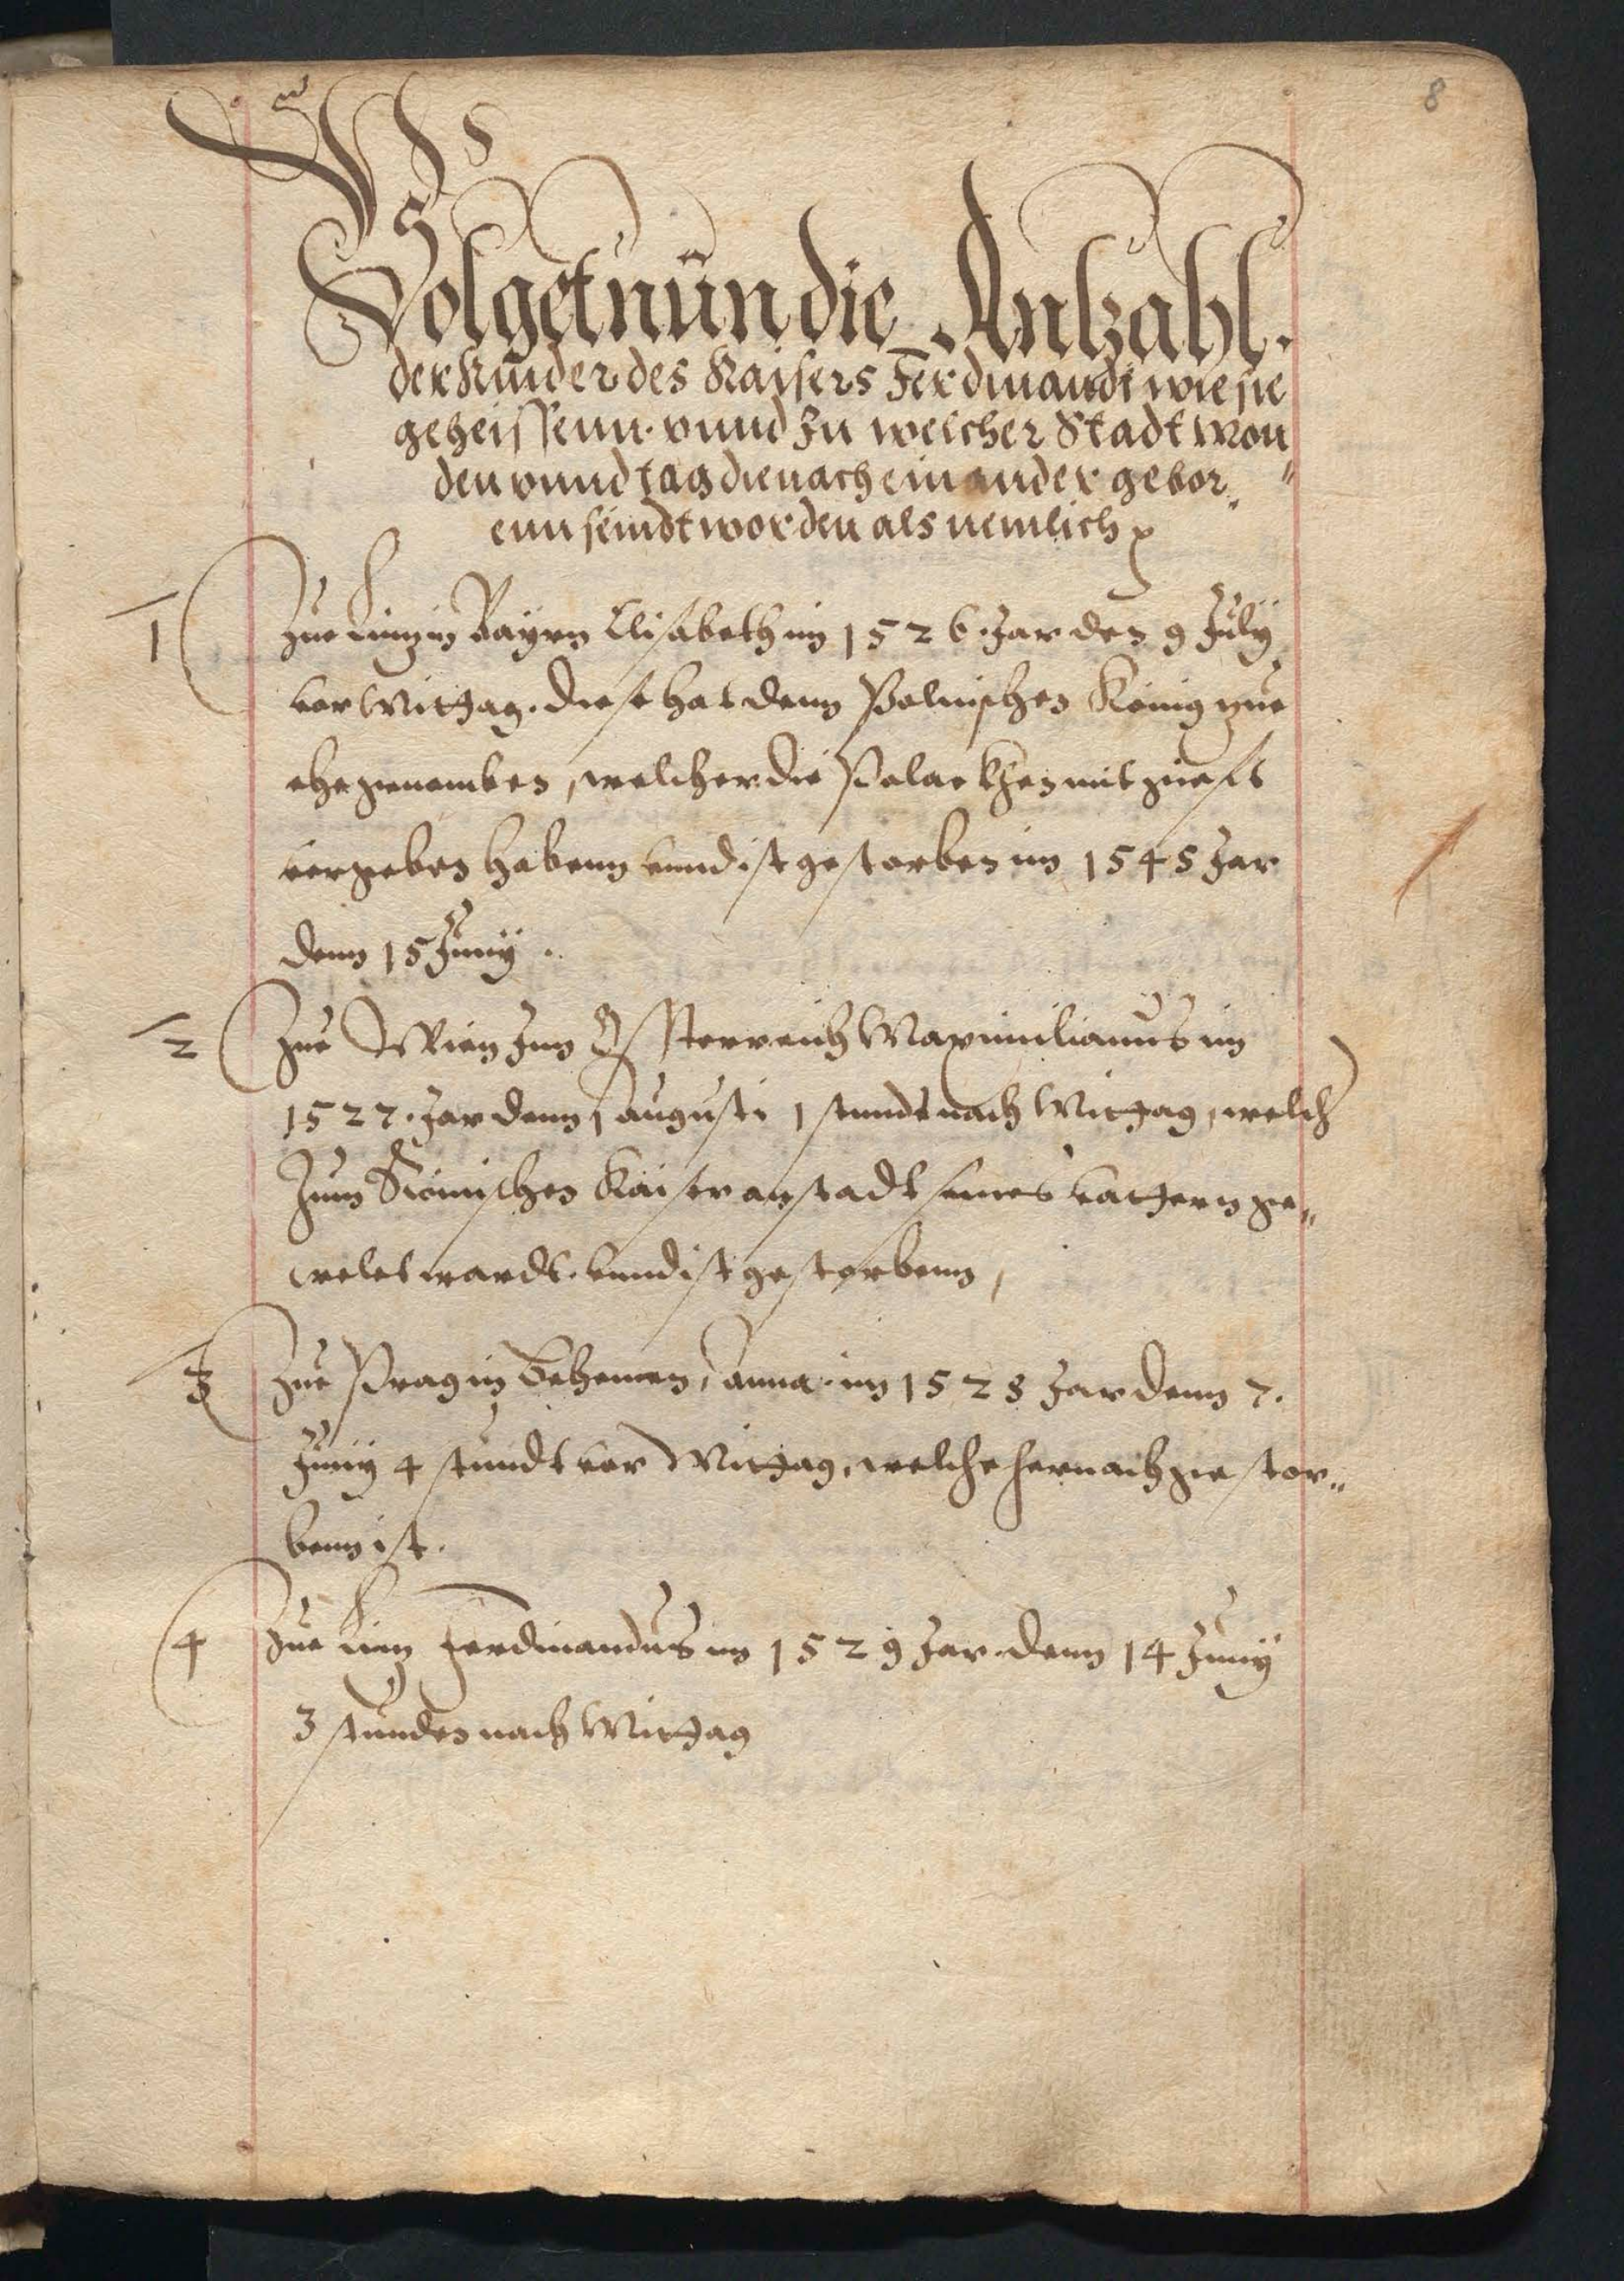 8
Volget nun die Antzahl.
der Kinder des Kaisers Ferdinandi wie sie
geheissenn. vnnd zu welcher Stadt Mon
den vnnd tag die nach einander gebor„
enn seindt worden als nemlich
1 Zue Lintz in Bayrn Elisabeth im 1526. Jar den 9 July
vor Mittag. diese hat denn Polnischen König zue
ehe genomben, welcher die Polackhen mit giefft
vergeben habenn vnnd ist gestorben im 1545 Jar
denn 15 Juny.
2 Zue Wien Inn Össterreich Maximilianus im
1527. Jar denn 1 augusti 1 stundt nach Mittag, welch
Zum Römischen Kaiser anstadt seines vattern ge„
welet wardt. vnnd ist gestorbenn,
3 Zue Prag in Behemen, anna. im 1528 Jar denn 7.
Juny 4 stundt vor Mittag, welche hernach gestor„
benn ist.
4 Zue Lintz Ferdinandus im 1529 Jar denn 14 Juny
3 stunden nach Mittag